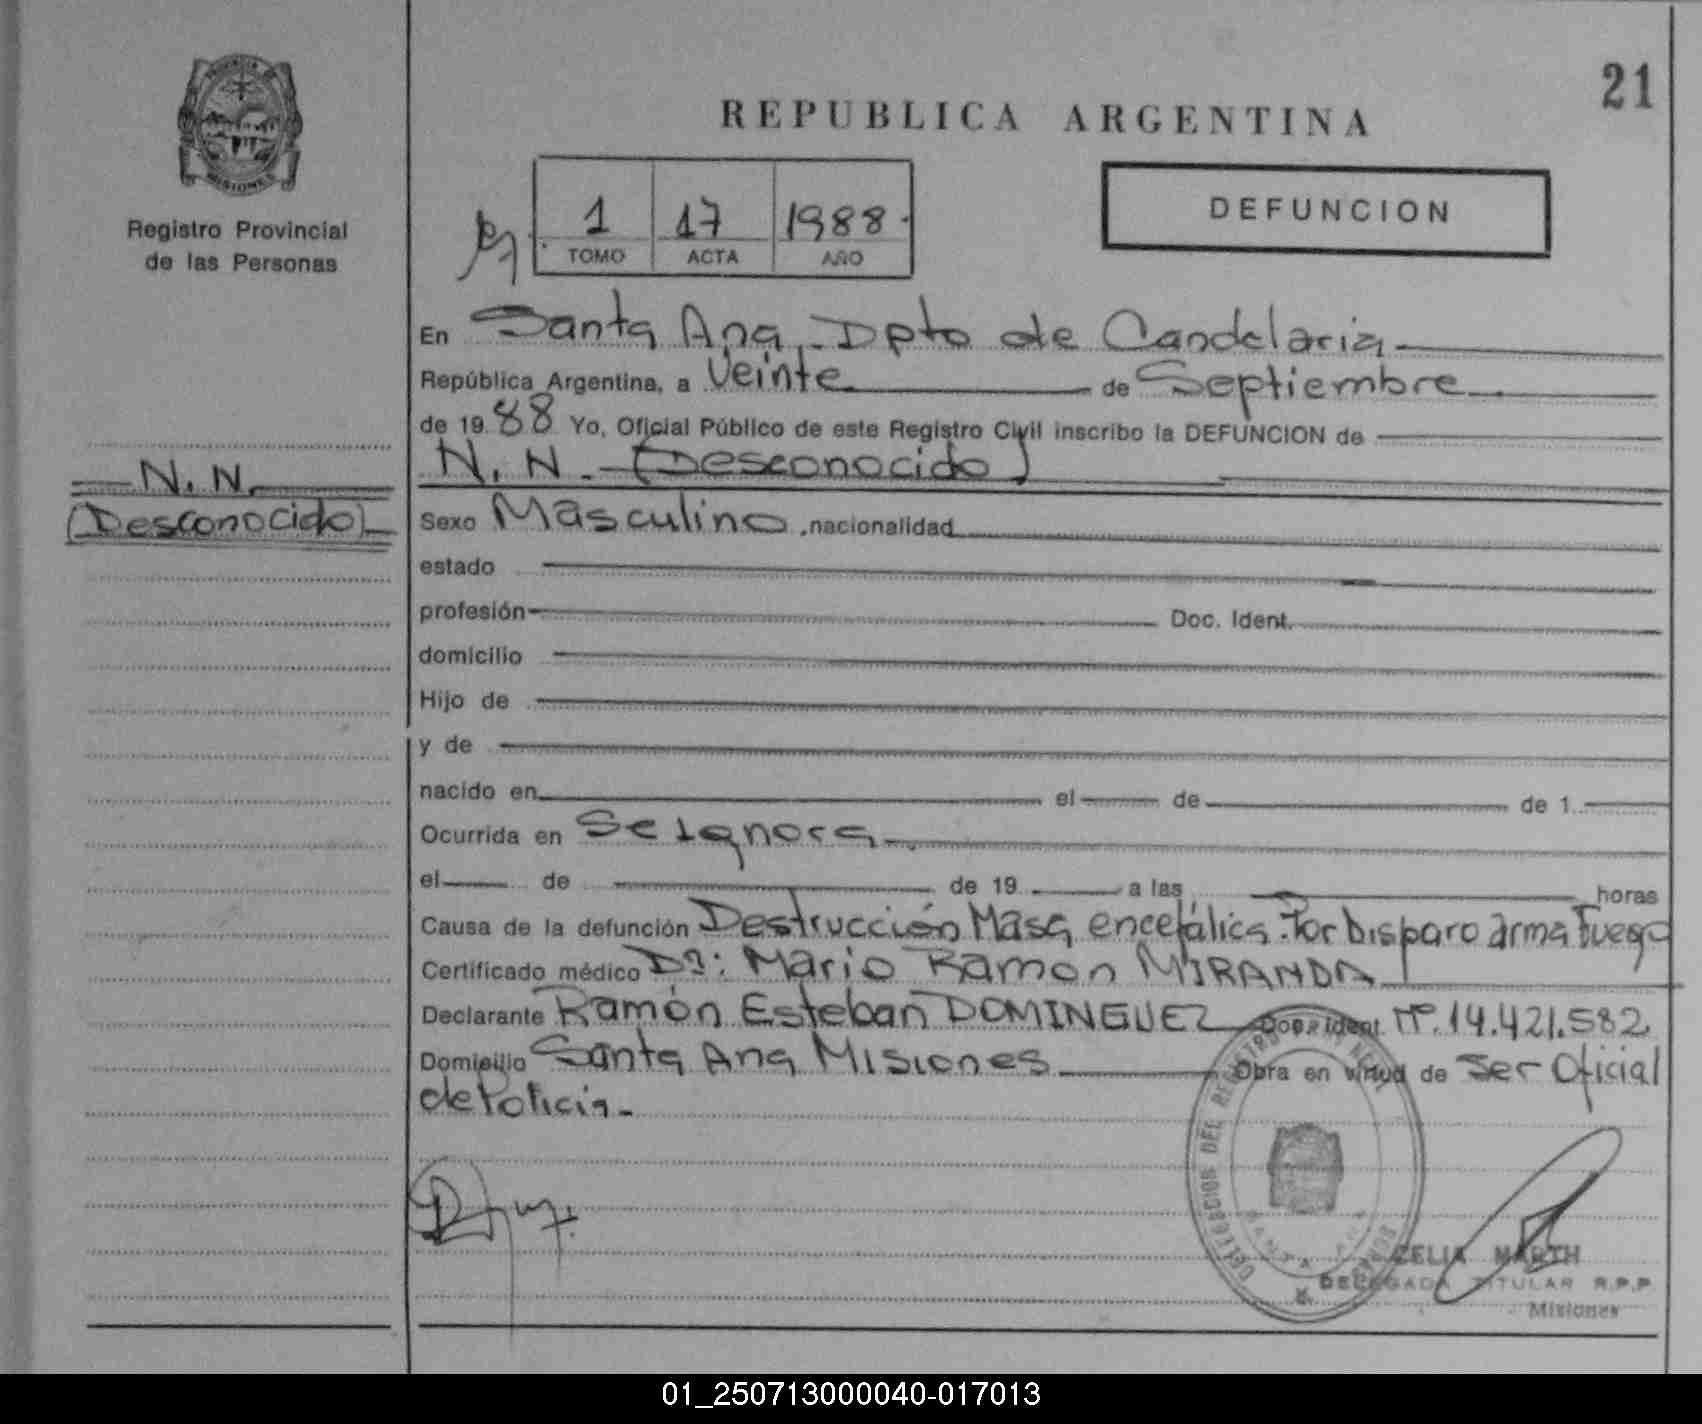 21
PROVINCIA DE
MISIONES
Registro Provincial
de las Personas
REPUBLICA ARGENTINA
DEFUNCION
1 17 1988
TOMO ACTA AÑO
En Santa Ana. Dpto de Candelaria
República Argentina, a Veinte de Septiembre
de 19 88 Yo, Oficial Público de este Registro Civil inscribo la DEFUNCION de
N. N. (Desconocido)
N. N.
(Desconocido)
Sexo Masculino, nacionalidad
estado
profesión Doc. Ident.
domicilio
Hijo de
y de
nacido en el de de 1
Ocurrida en Se Ignora
el de de 19 a las horas
Causa de la defunción Destrucción Masa encefálica. Por Disparo arma Fuego
Certificado médico Dr: Mario Ramon MIRANDA
Declarante Ramón Esteban DOMINGUEZ Doc. Ident. Nº. 14.421.582
Domicilio Santa Ana Misiones Obra en virtud de Ser Oficial
de Policia.
SANTA ANA
CELIA MARTH
DELEGADA TITULAR R.P.P
Misiones
01_250713000040-017013